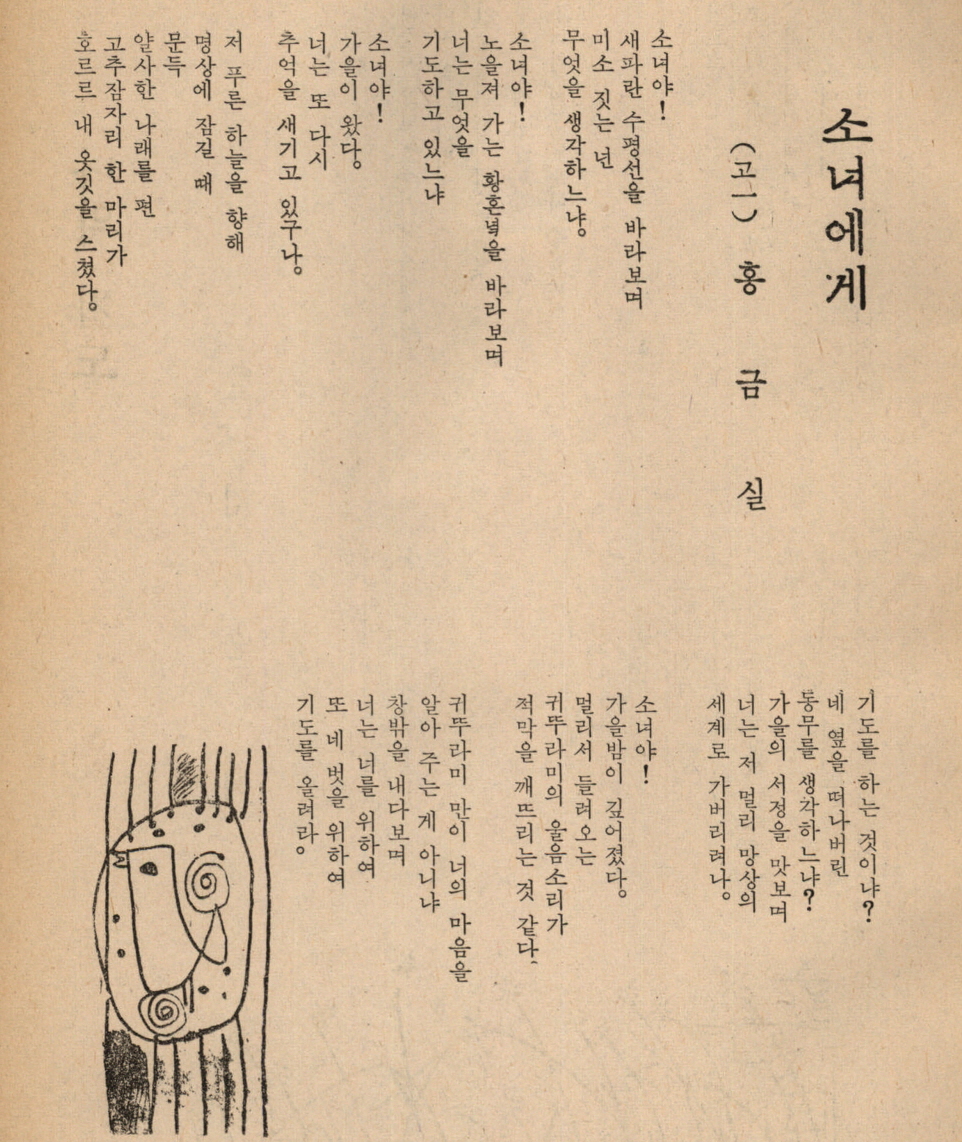 소녀에게
(고一) 홍 금 실
소녀야!
새파란 수평선을 바라보며
미소 짓는 넌
무엇을 생각하느냐。
소녀야!
노을져 가는 황혼녘을 바라보며
너는 무엇을
기도하고 있느냐
소녀야!
가을이 왔다。
너는 또 다시
추억을 새기고 있구나。
저 푸른 하늘을 향해
명상에 잠길 때
문득
얄사한 나래를 편
고추잠자리 한 마리가
호르르 내 옷깃을 스쳤다。
기도를 하는 것이냐?
네 옆을 떠나버린
동무를 생각하느냐?
가을의 서정을 맛보며
너는 저 멀리 망상의
세계로 가버리려나。
소녀야!
가을밤이 깊어졌다。
멀리서 들려오는
귀뚜라미의 울음소리가
적막을 깨뜨리는 것 같다
귀뚜라미 만이 너의 마음을
알아 주는 게 아니냐
창밖을 내다보며
너는 너를 위하여
또 네 벗을 위하여
기도를 올려라。